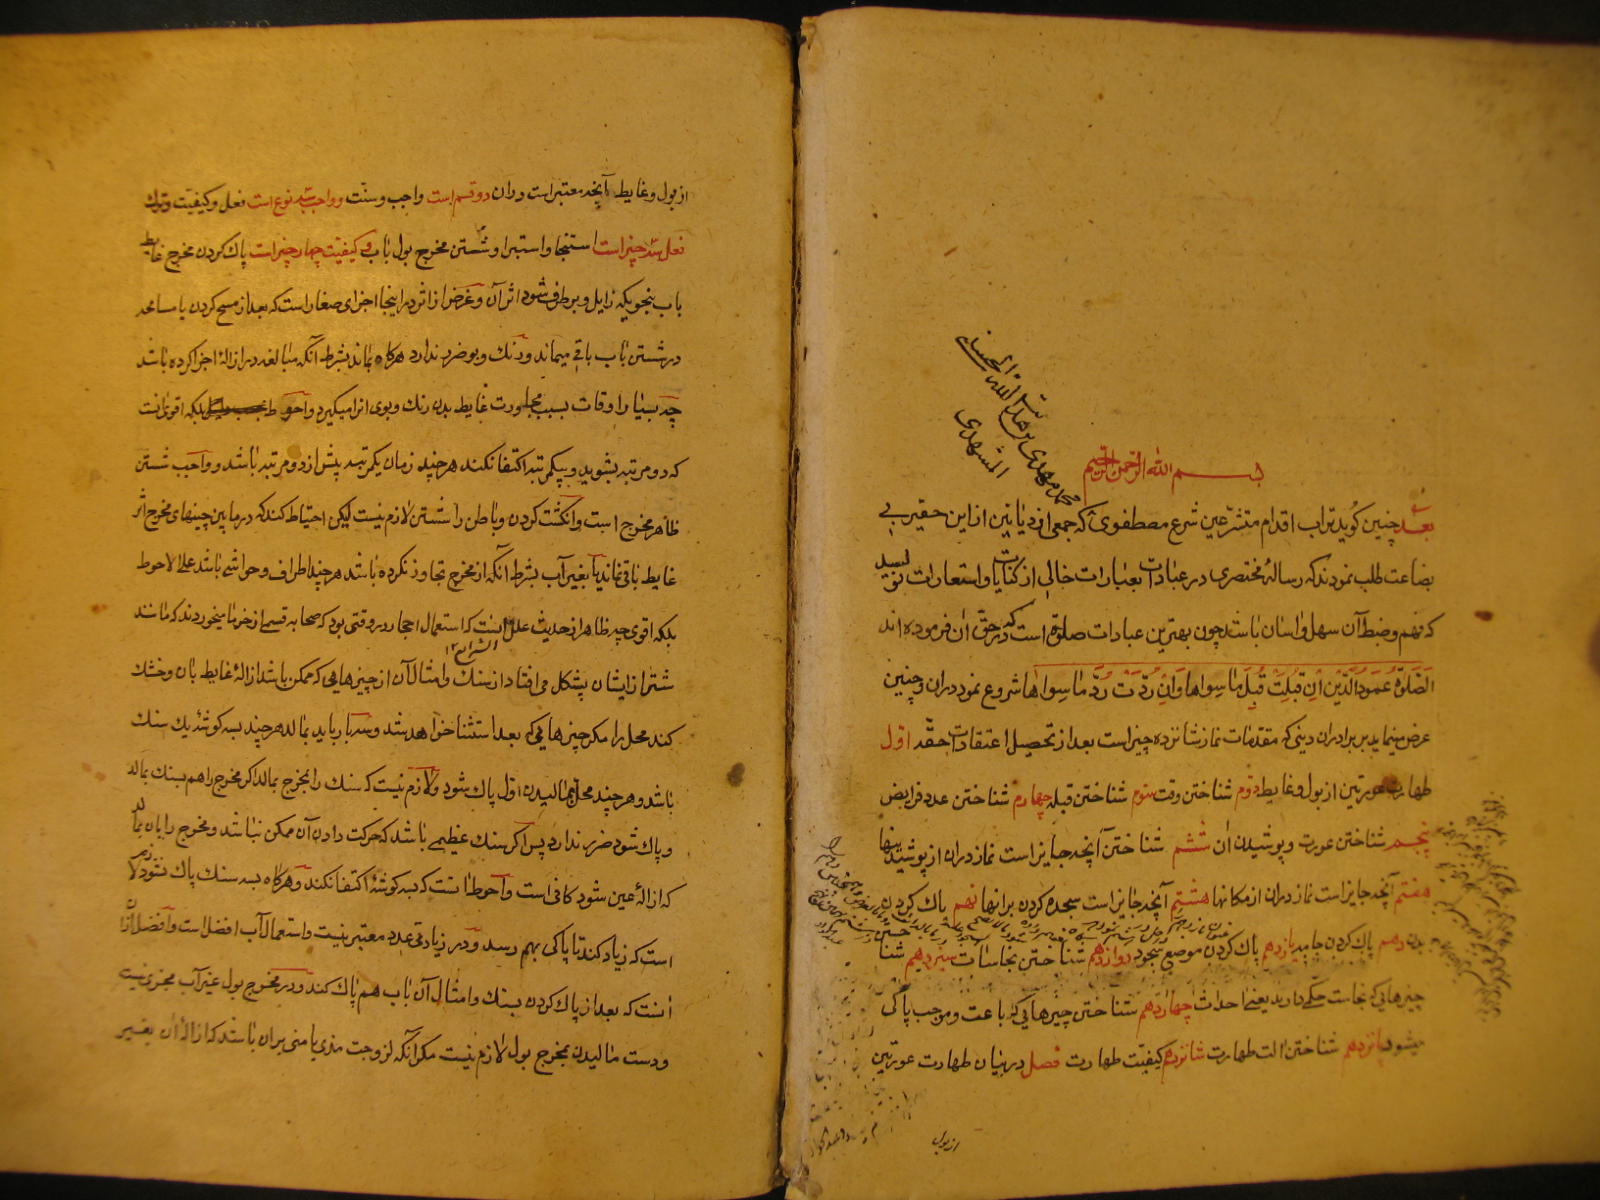 بسم الله الرحمن الرحیم
محمد مهدی بن هدایت الله الحسینی
المشهدی
بعد چنین کوید تراب اقدام متشرعین شرع مصطفوی که جمعی از دیانین از این حقیر بی
بضاعت طلب نمودند که رسالهٔ مختصری در عبادات بعبارات خالی از کنایات و استعارات نویسد
که فهم و ضبط آن سهل و اسان باشد چون بهترین عبادات صلوة است که در حق ان فرموده اند
الصَّلوة عَمودُ الدّین اِن قُبِلَت قُبِلَ ماسِواها وَاِن رُدَّت رُدَّ ماسِواها شروع نمود دران و چنین
عرض مینماید بر برادران دینی که مقدمات نماز شانزده چیز است بعد از تحصیل اعتقادات حقه اول
طهارت عورتین از بول و غایط دوم شناختن وقت سوم شناختن قبله چهارم شناختن عدد فرایض
پنجم شناختن عورت و پوشیدن ان ششم شناختن آنچه جایز است نماز دران از پوشیدنیها
هفتم آنچه جایز است نماز دران از مکانها هشتم آنچه جایز است سجده کردن برانها نهم پاک کردن
بدن دهم پاک کردن جامه یازدهم پاک کردن موضع سجود دوازدهم شناختن نجاسات سیزدهم شنا
چیزهایی که نجاست حکمی دارند یعنی احداث چهاردهم شناختن چیزهایی که باعث و موجب پاکی
میشود پانزدهم شناختن الت طهارت شانزدهم کیفیت طهارت فصل در بیان طهارت عورتین
از بول
از بول و غایط آنچه معتبر است دران دو قسم است واجب و سنت و واجب سه نوع است فعل و کیفیت و ترک
فعل سه چیز است استنجا و استبرا و شستن مخرج بول باب و کیفیت چهار چیز است پاک کردن مخرج غایط
باب بنحویکه زایل و برطرف شود اثر آن و غرض از اثر در اینجا اجزای صغار است که بعد از مسح کردن یا مسامحه
در شستن باب باقی میماند و رنک و بو ضرر ندارد هرکاه بماند بشرط آنکه مبالغه در ازالهٔ اجزا کرده باشد
چه بسیار اوقات بسبب مجاورت غایط بدن رنک و بوی انرا میکیرد و احوط بلکه اقوی انست
که دو مرتبه بشوید و بیکمرتبه اکتفا نکند هرچند زمان یکمرتبه پیش از دو مرتبه باشد و واجب شستن
ظاهر مخرج است و انکشت کردن و باطن را شستن لازم نیست لیکن احتیاط کند که در مابین چینهای مخرج اثر
غایط باقی نماند یا بغیر آب بشرط آنکه از مخرج تجاوز نکرده باشد هرچند اطراف و حواشی باشد علی الاحوط
بلکه اقوی چه ظاهر از حدیث علل الشرایع انست که استعمال احجار در وقتی بود که صحابه قسمی از خرما میخوردند که مانند
شتر از ایشان پشکل می افتاد از سنک و امثال آن از چیزهایی که ممکن باشد ازالهٔ غایط بان و خشک
کند محل را مکر چیزهایی که بعد استثنا خواهد شد و سه بار باید بمالد هرچند بسه کوشهٔ یک سنک
باشد و هرچند محل بمالیدن اول پاک شود و لازم نیست که سنک را بمخرج بمالد اکر مخرج را هم بسنک بمالد
و پاک شود ضرر ندارد پس اکر سنک عظیمی باشد که حرکت دادن آن ممکن نباشد و مخرج را بان بمالد
که ازالهٔ عین شود کافی است و احوط انست که بسه کوشهٔ اکتفا نکند و هرکاه بسه سنک پاک نشود لازم
است که زیاد کند تا پاکی بهم رسد و در زیادتی عدد معتبر نیست و استعمال آب افضل است و افضل ازان
انست که بعد از پاک کردن بسنک و امثال آن باب هم پاک کند و در مخرج بول غیر آب مجزی نیست
و دست مالیدن بمخرج بول لازم نیست مکر آنکه لزوجت مذی یا منی بران باشد که ازالهٔ ان بغیر